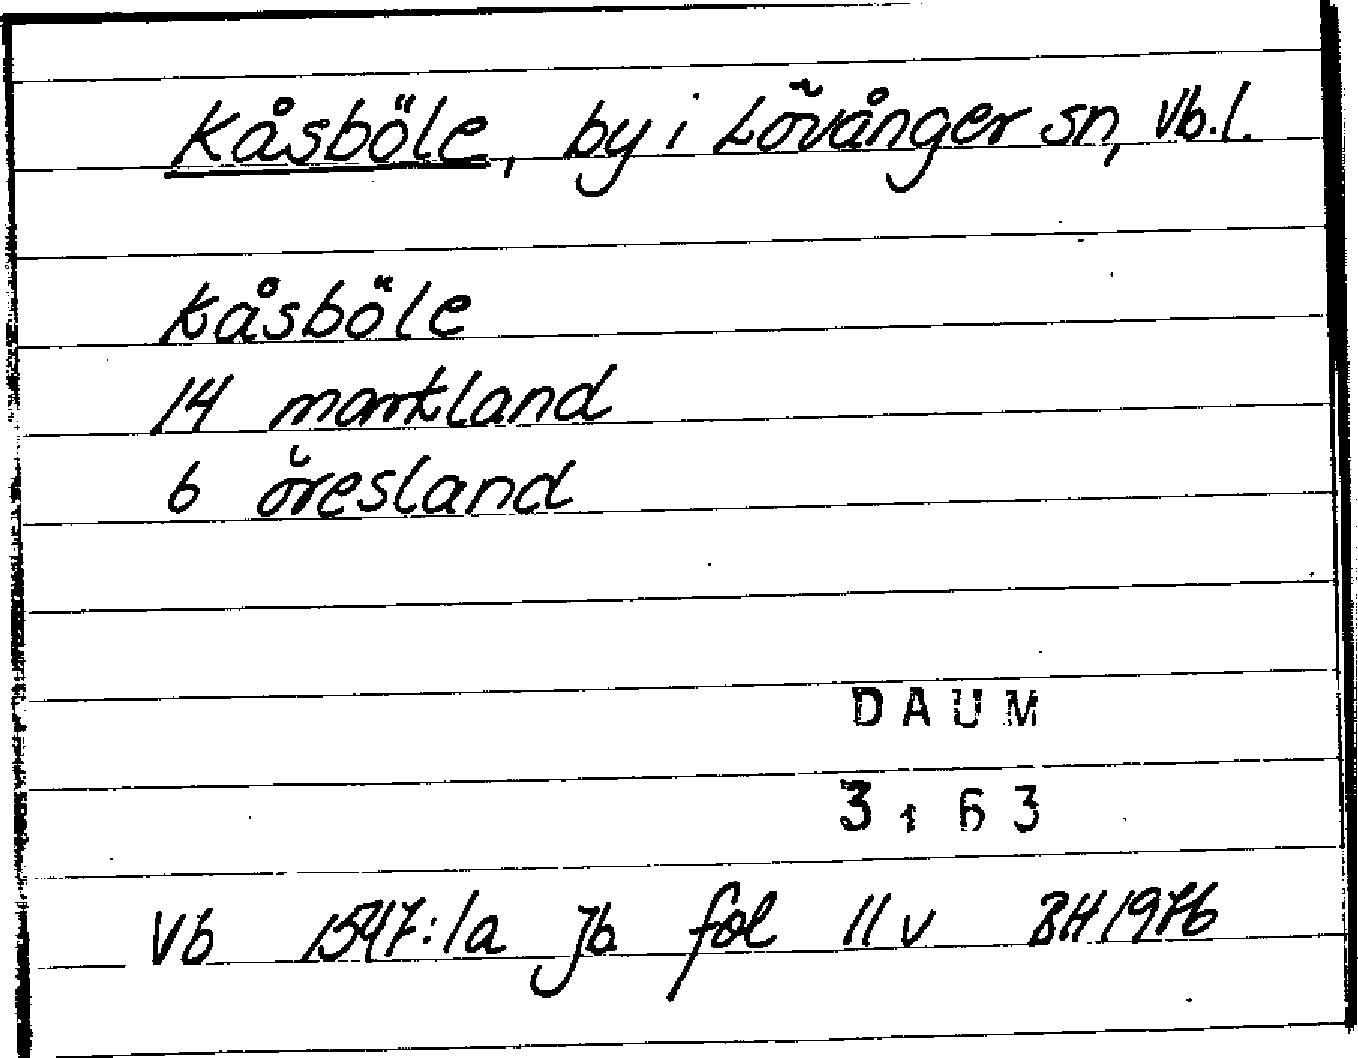 Kåsböle, by i Lövånger sn, Vb.l.
Kåsböle
14 markland
6 öresland
DAUM
3163
Vb 1547:1a Jb fol 11 v BH 1976